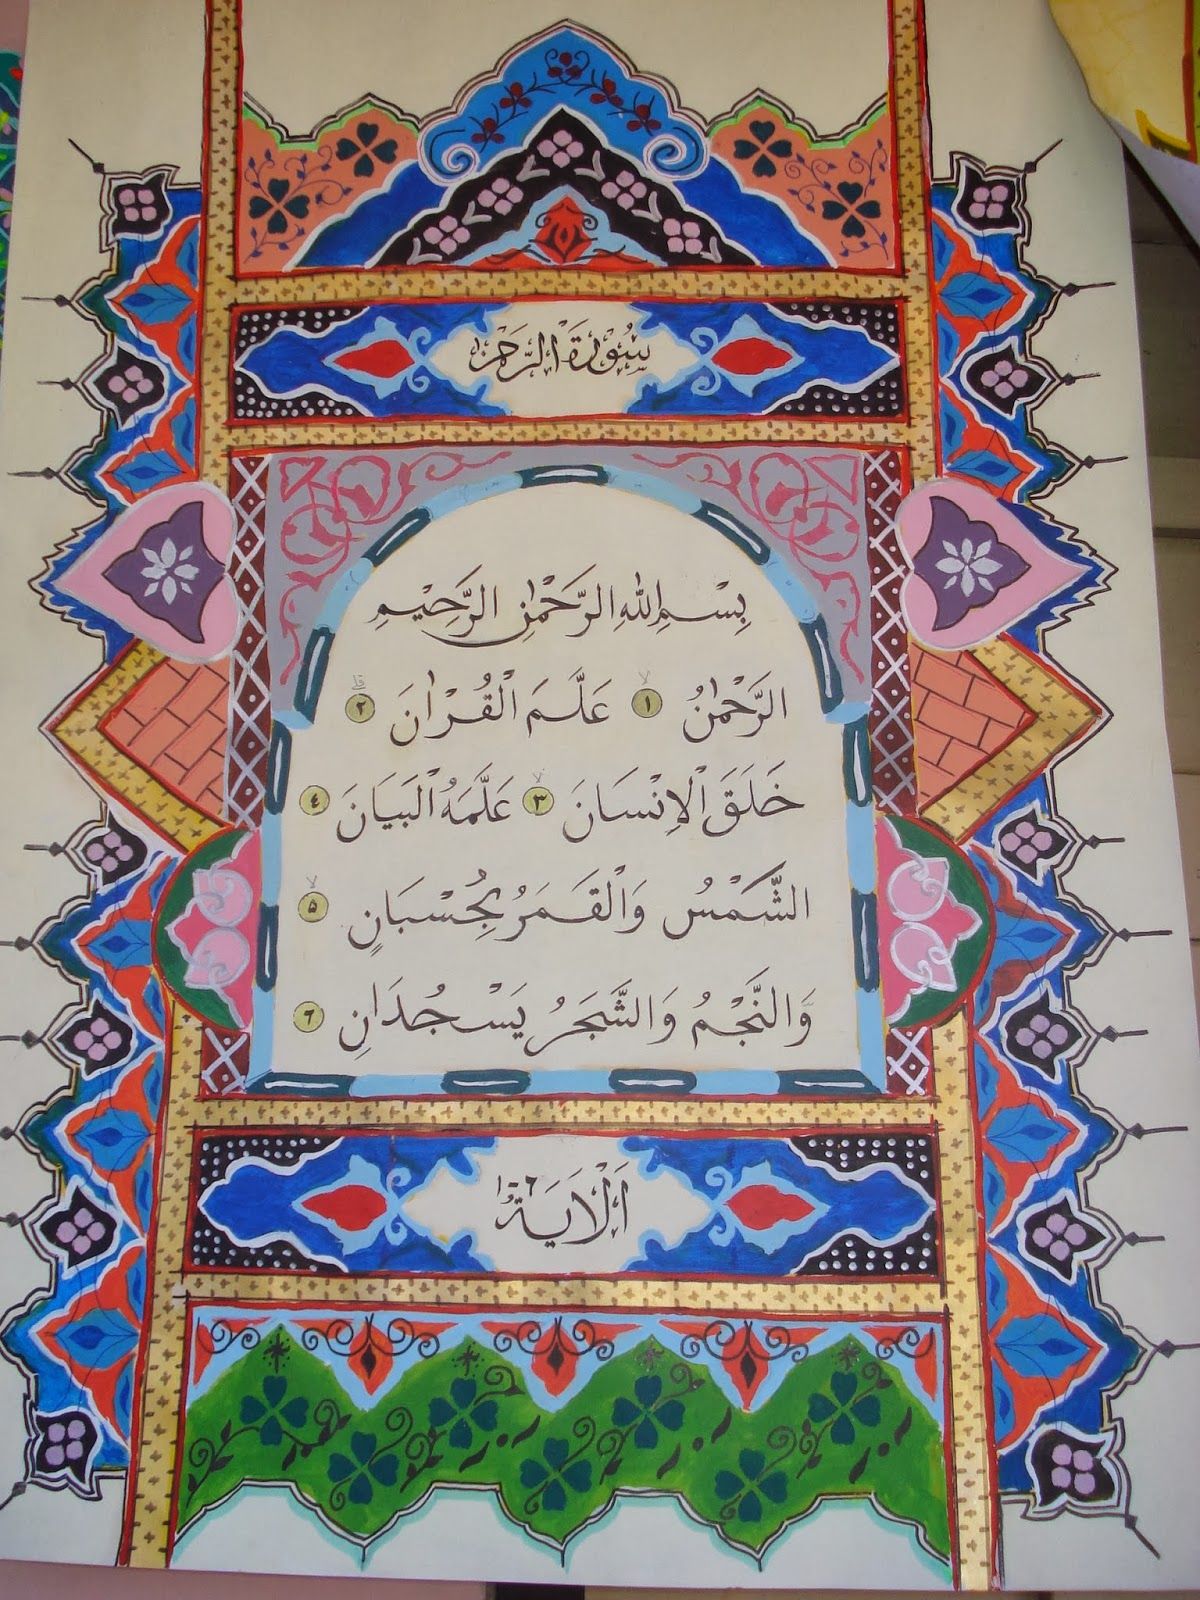 سُوْرَةُ الرَّحْمٰن
بِسْمِ اللهِ الرَّحْمٰنِ الرَّحِيْمِ
الرَّحْمٰنُ ۙ ١ عَلَّمَ الْقُرْاٰنَ ٢
خَلَقَ الْاِنْسَانَ ۙ ٣ عَلَّمَهُ الْبَيَانَ ٤
الشَّمْسُ وَالْقَمَرُ بِحُسْبَانٍ ۙ ٥
وَالنَّجْمُ وَالشَّجَرُ يَسْجُدَانِ ٦
اَلْاَيَةُ ١-٦